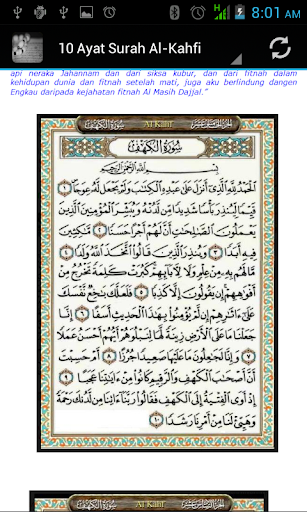 8:01 AM
10 Ayat Surah Al-Kahfi
api neraka Jahannam dan dari siksa kubur, dan dari fitnah dalam
kehidupan dunia dan fitnah setelah mati, juga aku berlindung dangen
Engkau daripada kejahatan fitnah Al Masih Dajjal."
سورة الكهف
Al Kahf
الجزء الخامس عشر
سُورَةُ الكَهْفِ
بِسْمِ اللَّهِ الرَّحْمَٰنِ الرَّحِيمِ
الْحَمْدُ لِلَّهِ الَّذِي أَنْزَلَ عَلَىٰ عَبْدِهِ الْكِتَٰبَ وَلَمْ يَجْعَل لَّهُ عِوَجًا ١
قَيِّمًا لِّيُنذِرَ بَأْسًا شَدِيدًا مِّن لَّدُنْهُ وَيُبَشِّرَ الْمُؤْمِنِينَ الَّذِينَ
يَعْمَلُونَ الصَّٰلِحَٰتِ أَنَّ لَهُمْ أَجْرًا حَسَنًا ٢ مَّٰكِثِينَ
فِيهِ أَبَدًا ٣ وَيُنذِرَ الَّذِينَ قَالُوا اتَّخَذَ اللَّهُ وَلَدًا ٤
مَّا لَهُم بِهِ مِنْ عِلْمٍ وَلَا لِءَابَائِهِمْ كَبُرَتْ كَلِمَةً تَخْرُجُ مِنْ
أَفْوَٰهِهِمْ إِن يَقُولُونَ إِلَّا كَذِبًا ٥ فَلَعَلَّكَ بَٰخِعٌ نَّفْسَكَ
عَلَىٰ ءَاثَٰرِهِمْ إِن لَّمْ يُؤْمِنُوا بِهَٰذَا الْحَدِيثِ أَسَفًا ٦ إِنَّا
جَعَلْنَا مَا عَلَى الْأَرْضِ زِينَةً لَّهَا لِنَبْلُوَهُمْ أَيُّهُمْ أَحْسَنُ عَمَلًا
٧ وَإِنَّا لَجَٰعِلُونَ مَا عَلَيْهَا صَعِيدًا جُرُزًا ٨ أَمْ حَسِبْتَ
أَنَّ أَصْحَٰبَ الْكَهْفِ وَالرَّقِيمِ كَانُوا مِنْ ءَايَٰتِنَا عَجَبًا
٩ إِذْ أَوَى الْفِتْيَةُ إِلَى الْكَهْفِ فَقَالُوا رَبَّنَا ءَاتِنَا مِن لَّدُنكَ رَحْمَةً
وَهَيِّئْ لَنَا مِنْ أَمْرِنَا رَشَدًا ١٠
سورة الكهف
Al Kahf
الجزء الخامس عشر